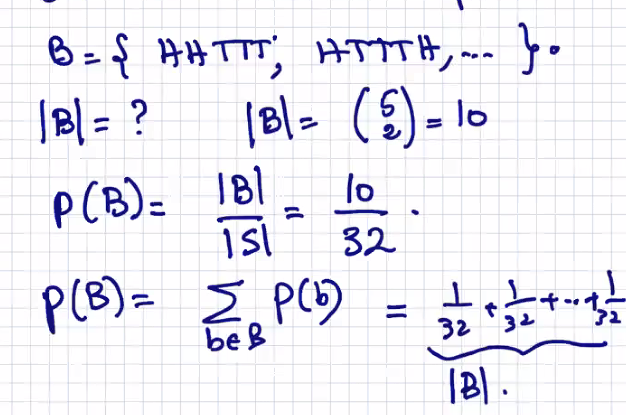 B = { HHTTT, HTTTH, ... }.
|B| = ? |B| = (5 2) = 10
P(B) = |B| / |S| = 10 / 32 .
P(B) = ∑ b∈B P(b) = 1/32 + 1/32 + ... + 1/32
|B| .